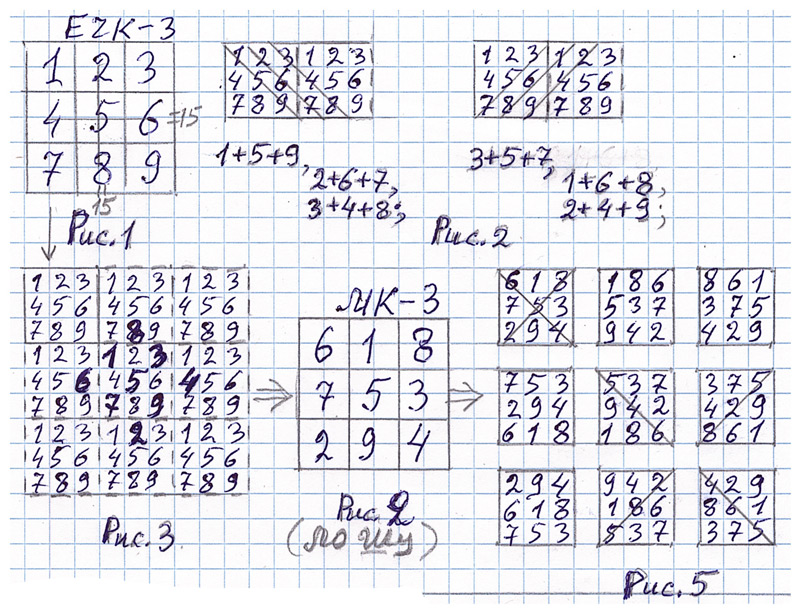 ЕЧК-3
1 2 3
4 5 6 =15
7 8 9
15
Рис.1
1 2 3 1 2 3
4 5 6 4 5 6
7 8 9 7 8 9
1+5+9,
2+6+7,
3+4+8;
1 2 3 1 2 3
4 5 6 4 5 6
7 8 9 7 8 9
3+5+7,
1+6+8;
2+4+9;
Рис.2
1 2 3 1 2 3 1 2 3
4 5 6 4 5 6 4 5 6
7 8 9 7 8 9 7 8 9
1 2 3 1 2 3 1 2 3
4 5 6 4 5 6 4 5 6
7 8 9 7 8 9 7 8 9
1 2 3 1 2 3 1 2 3
4 5 6 4 5 6 4 5 6
7 8 9 7 8 9 7 8 9
Рис.3
МК-3
6 1 8
7 5 3
2 9 4
Рис.2
(ло шу)
6 1 8 1 8 6 8 6 1
7 5 3 5 3 7 3 7 5
2 9 4 9 4 2 4 2 9
7 5 3 5 3 7 3 7 5
2 9 4 9 4 2 4 2 9
6 1 8 1 8 6 8 6 1
2 9 4 9 4 2 4 2 9
6 1 8 1 8 6 8 6 1
7 5 3 5 3 7 3 7 5
Рис.5